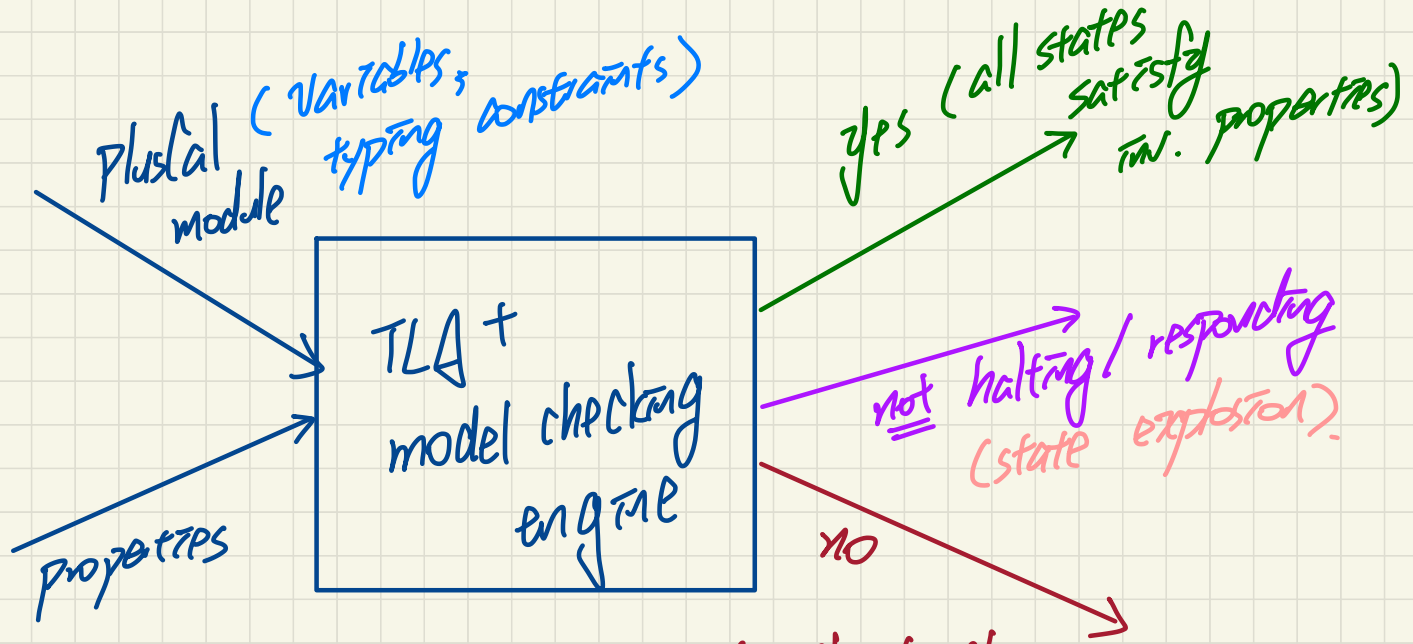 PlusCal
module
(variables,
typing constraints)
properties
TLA+
model checking
engine
yes
(all states
satisfy
inv. properties)
not halting/responding
(state explosion).
no